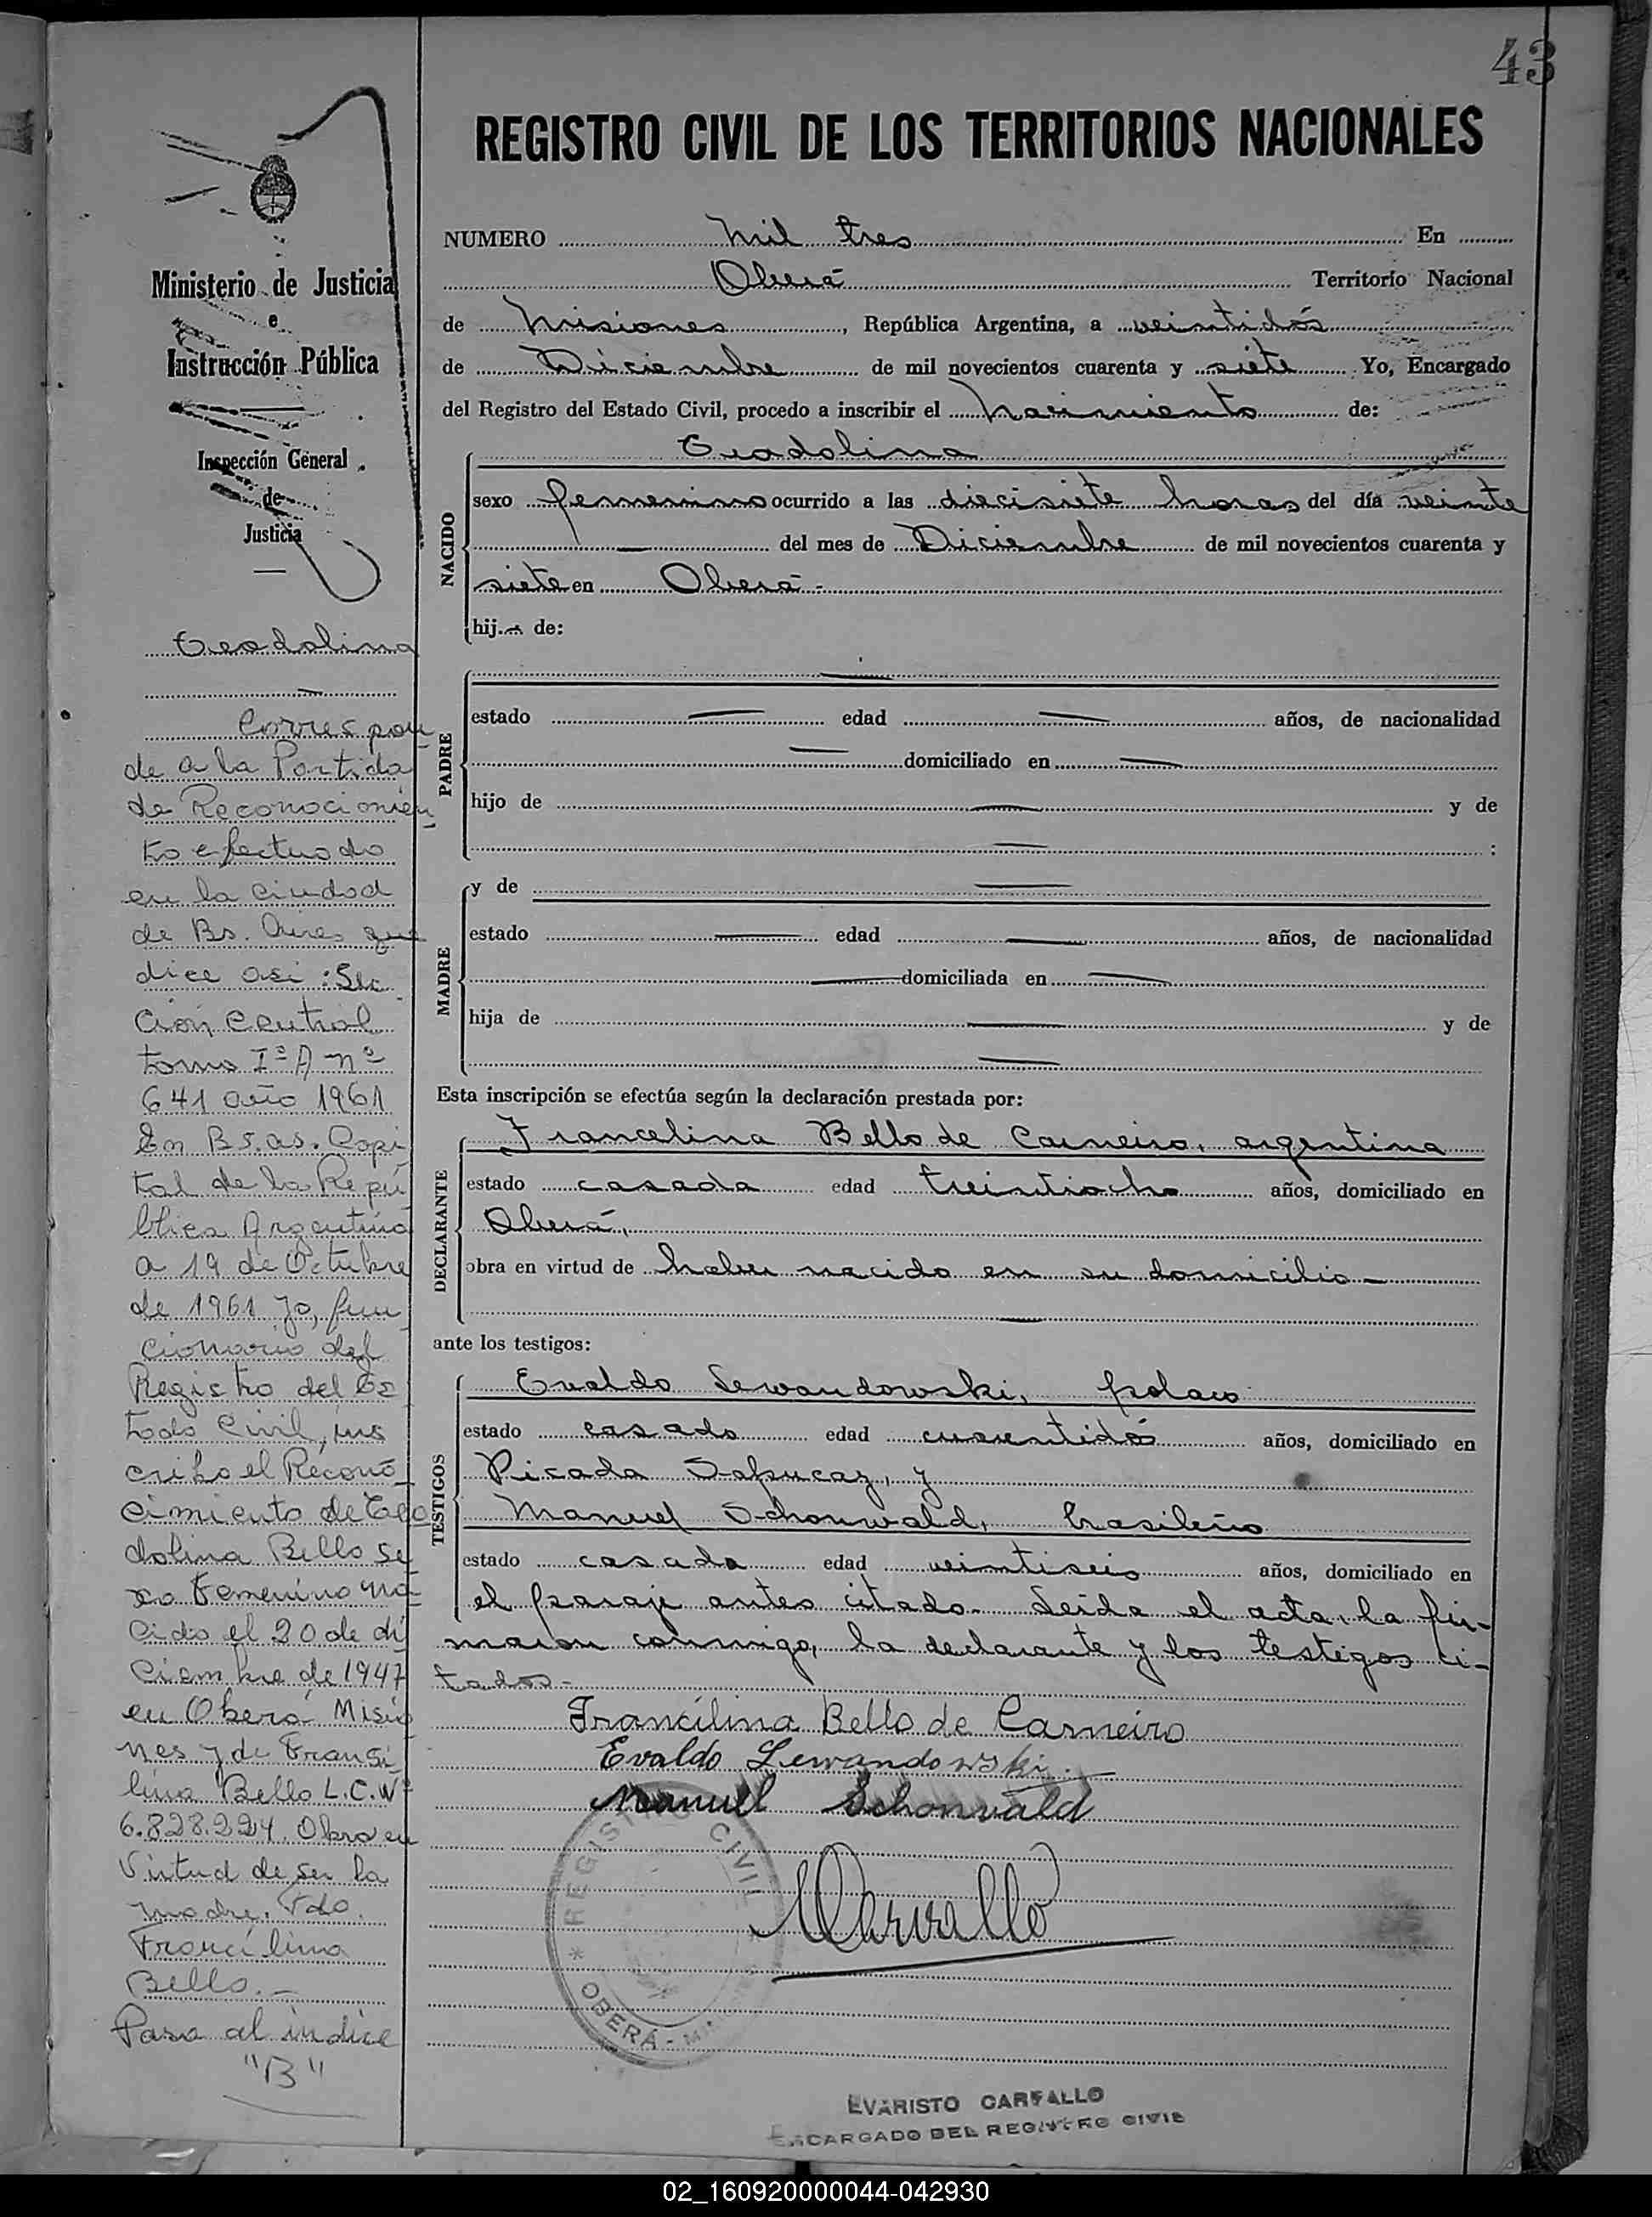 43
REGISTRO CIVIL DE LOS TERRITORIOS NACIONALES
Ministerio de Justicia
e
Instrucción Pública
Inspección General
de
Justicia
Teodolina
Correspon
de a la Partida
de Reconocimien
to efectuado
en la ciudad
de Bs. Aires que
dice asi: Sec
ción central
tomo Iº A nº
641 año 1961
En Bs. as. Capi
tal de la Repú
blica Argentina
a 19 de Octubre
de 1961 yo, fun
cionario del
Registro del Es
tado Civil, ins
cribo el Recono
cimiento de Teo
dolina Bello se
xo Femenino na
cido el 20 de di
ciembre de 1947
en Oberá Misio
nes y de Fransi
lina Bello L.C. Nº
6.828.224. Obra en
Virtud de ser la
madre. Fdo.
Francilina
Bello.-
Pasa al indice
"B"
NUMERO mil tres En
Oberá Territorio Nacional
de Misiones, República Argentina, a veintidós
de Diciembre de mil novecientos cuarenta y siete Yo, Encargado
del Registro del Estado Civil, procedo a inscribir el nacimiento de:
NACIDO
Teodolina
sexo femenino ocurrido a las diecisiete horas del día veinte
— del mes de Diciembre de mil novecientos cuarenta y
siete en Oberá-
hij a de:
PADRE
—
estado — edad — años, de nacionalidad
— domiciliado en —
hijo de — y de
— :
MADRE
y de —
estado — edad — años, de nacionalidad
— domiciliada en —
hija de — y de
—
Esta inscripción se efectúa según la declaración prestada por:
DECLARANTE
Francelina Bello de Carneiro, argentina
estado casada edad treintiocho años, domiciliado en
Oberá,
obra en virtud de haber nacido en su domicilio-
—
ante los testigos:
TESTIGOS
Evaldo Lewandowski, polaco
estado casado edad cuarentidós años, domiciliado en
Picada Sapucay, y
Manuel Schonwald, brasileño
estado casado edad veintiseis años, domiciliado en
el paraje antes citado. Leida el acta, la fir-
maron conmigo, la declarante y los testigos ci-
tados-
Francilina Bello de Carneiro
Evaldo Lewandowski.
Manuel Schonvald
Carvallo
REGISTRO CIVIL
* OBERÁ - MISIONES
EVARISTO CARVALLO
ENCARGADO DEL REGISTRO CIVIL
02_160920000044-042930